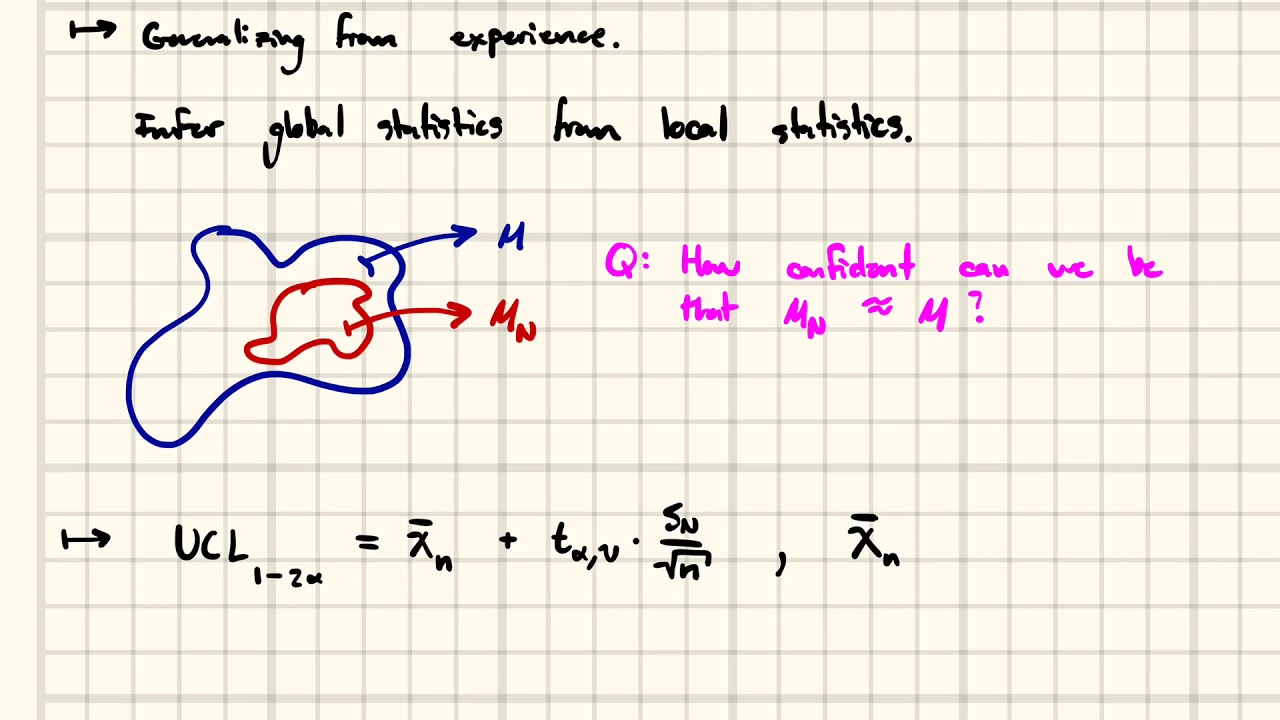 ↦ Generalizing from experience.
Infer global statistics from local statistics.
μ
μ_N
Q: How confident can we be
that μ_N ≈ μ ?
↦ UCL_{1-2α} = x̄_n + t_{α,ν} · S_N/√n , x̄_n